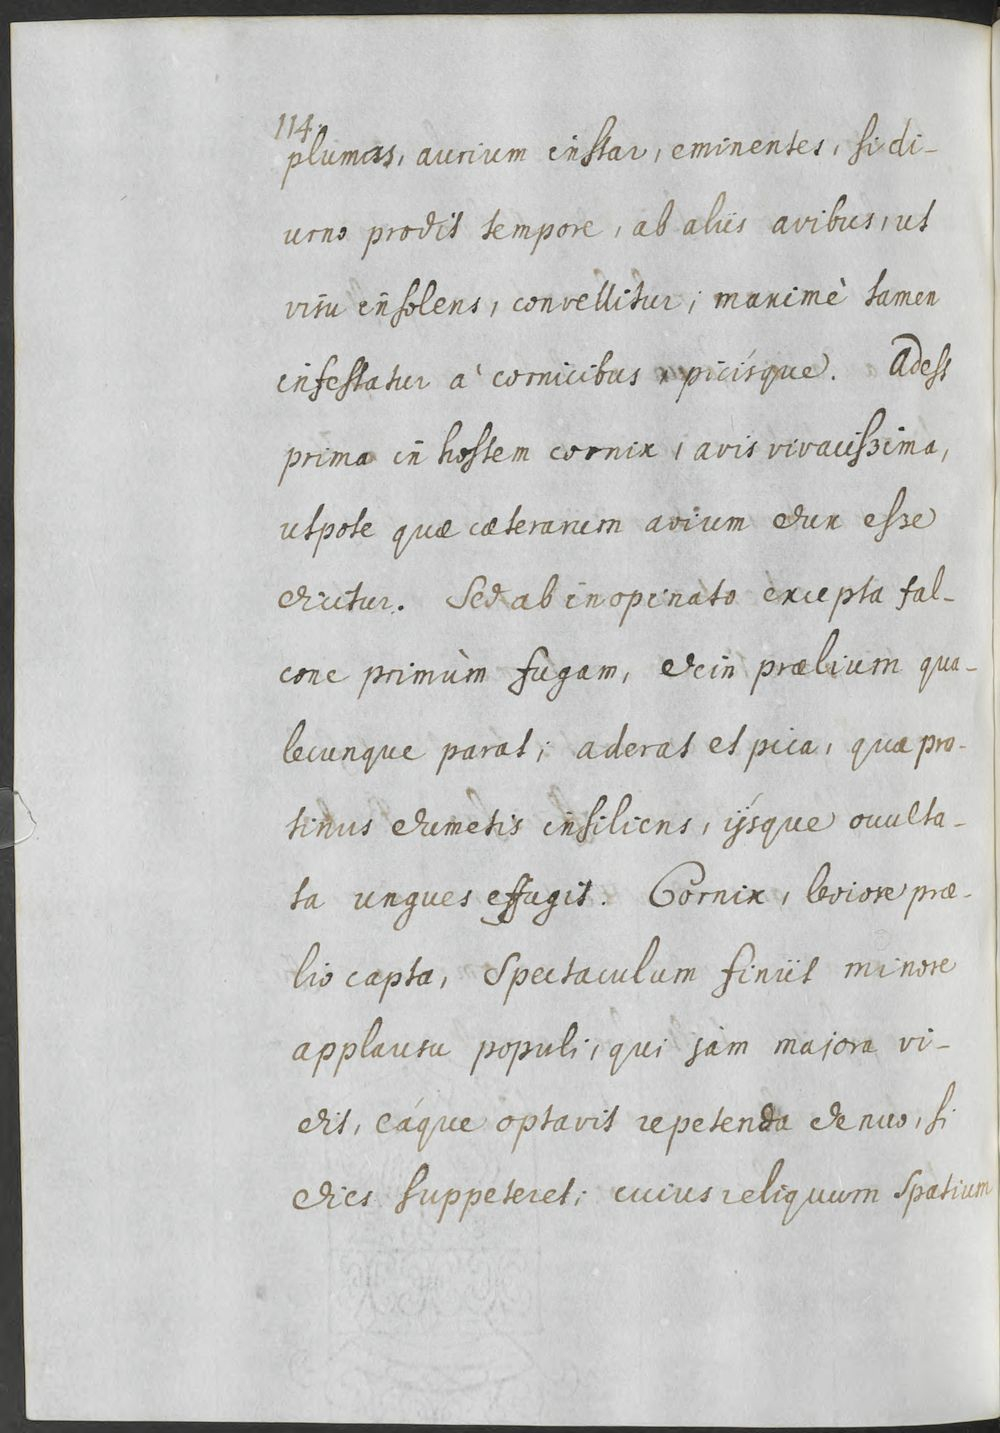 114.
plumas, aurium instar, eminentes, si di-
urno prodit tempore, ab aliis avibus, ut
visu insolens, convellitur; maximè tamen
infestatur à cornicibus, picisque. Adest
prima in hostem cornix, avis vivacissima,
utpote quæ cæterarum avium dux esse
dicitur. Sed ab inopinato excepta fal-
cone primùm fugam, dein prælium qua-
lecunque parat; aderat et pica, quæ pro-
tinus dumetis insiliens, ijsque occulta-
ta ungues effugit. Cornix, leviore præ-
lio capta, Spectaculum finiit minore
applausu populi, qui jàm majora vi-
dit, eáque optavit repetenda denuo, si
dies suppeteret; cuius reliquum spatium